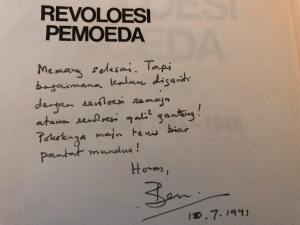 REVOLOESI
PEMOEDA
Memang selesai. Tapi
bagaimana kalau diganti
dengan revoloesi remaja
atawa revoloesi gali² gantung!
Pokoknya maju terus biar
pantat mundur!
Horas,
Ben
10.7.1991